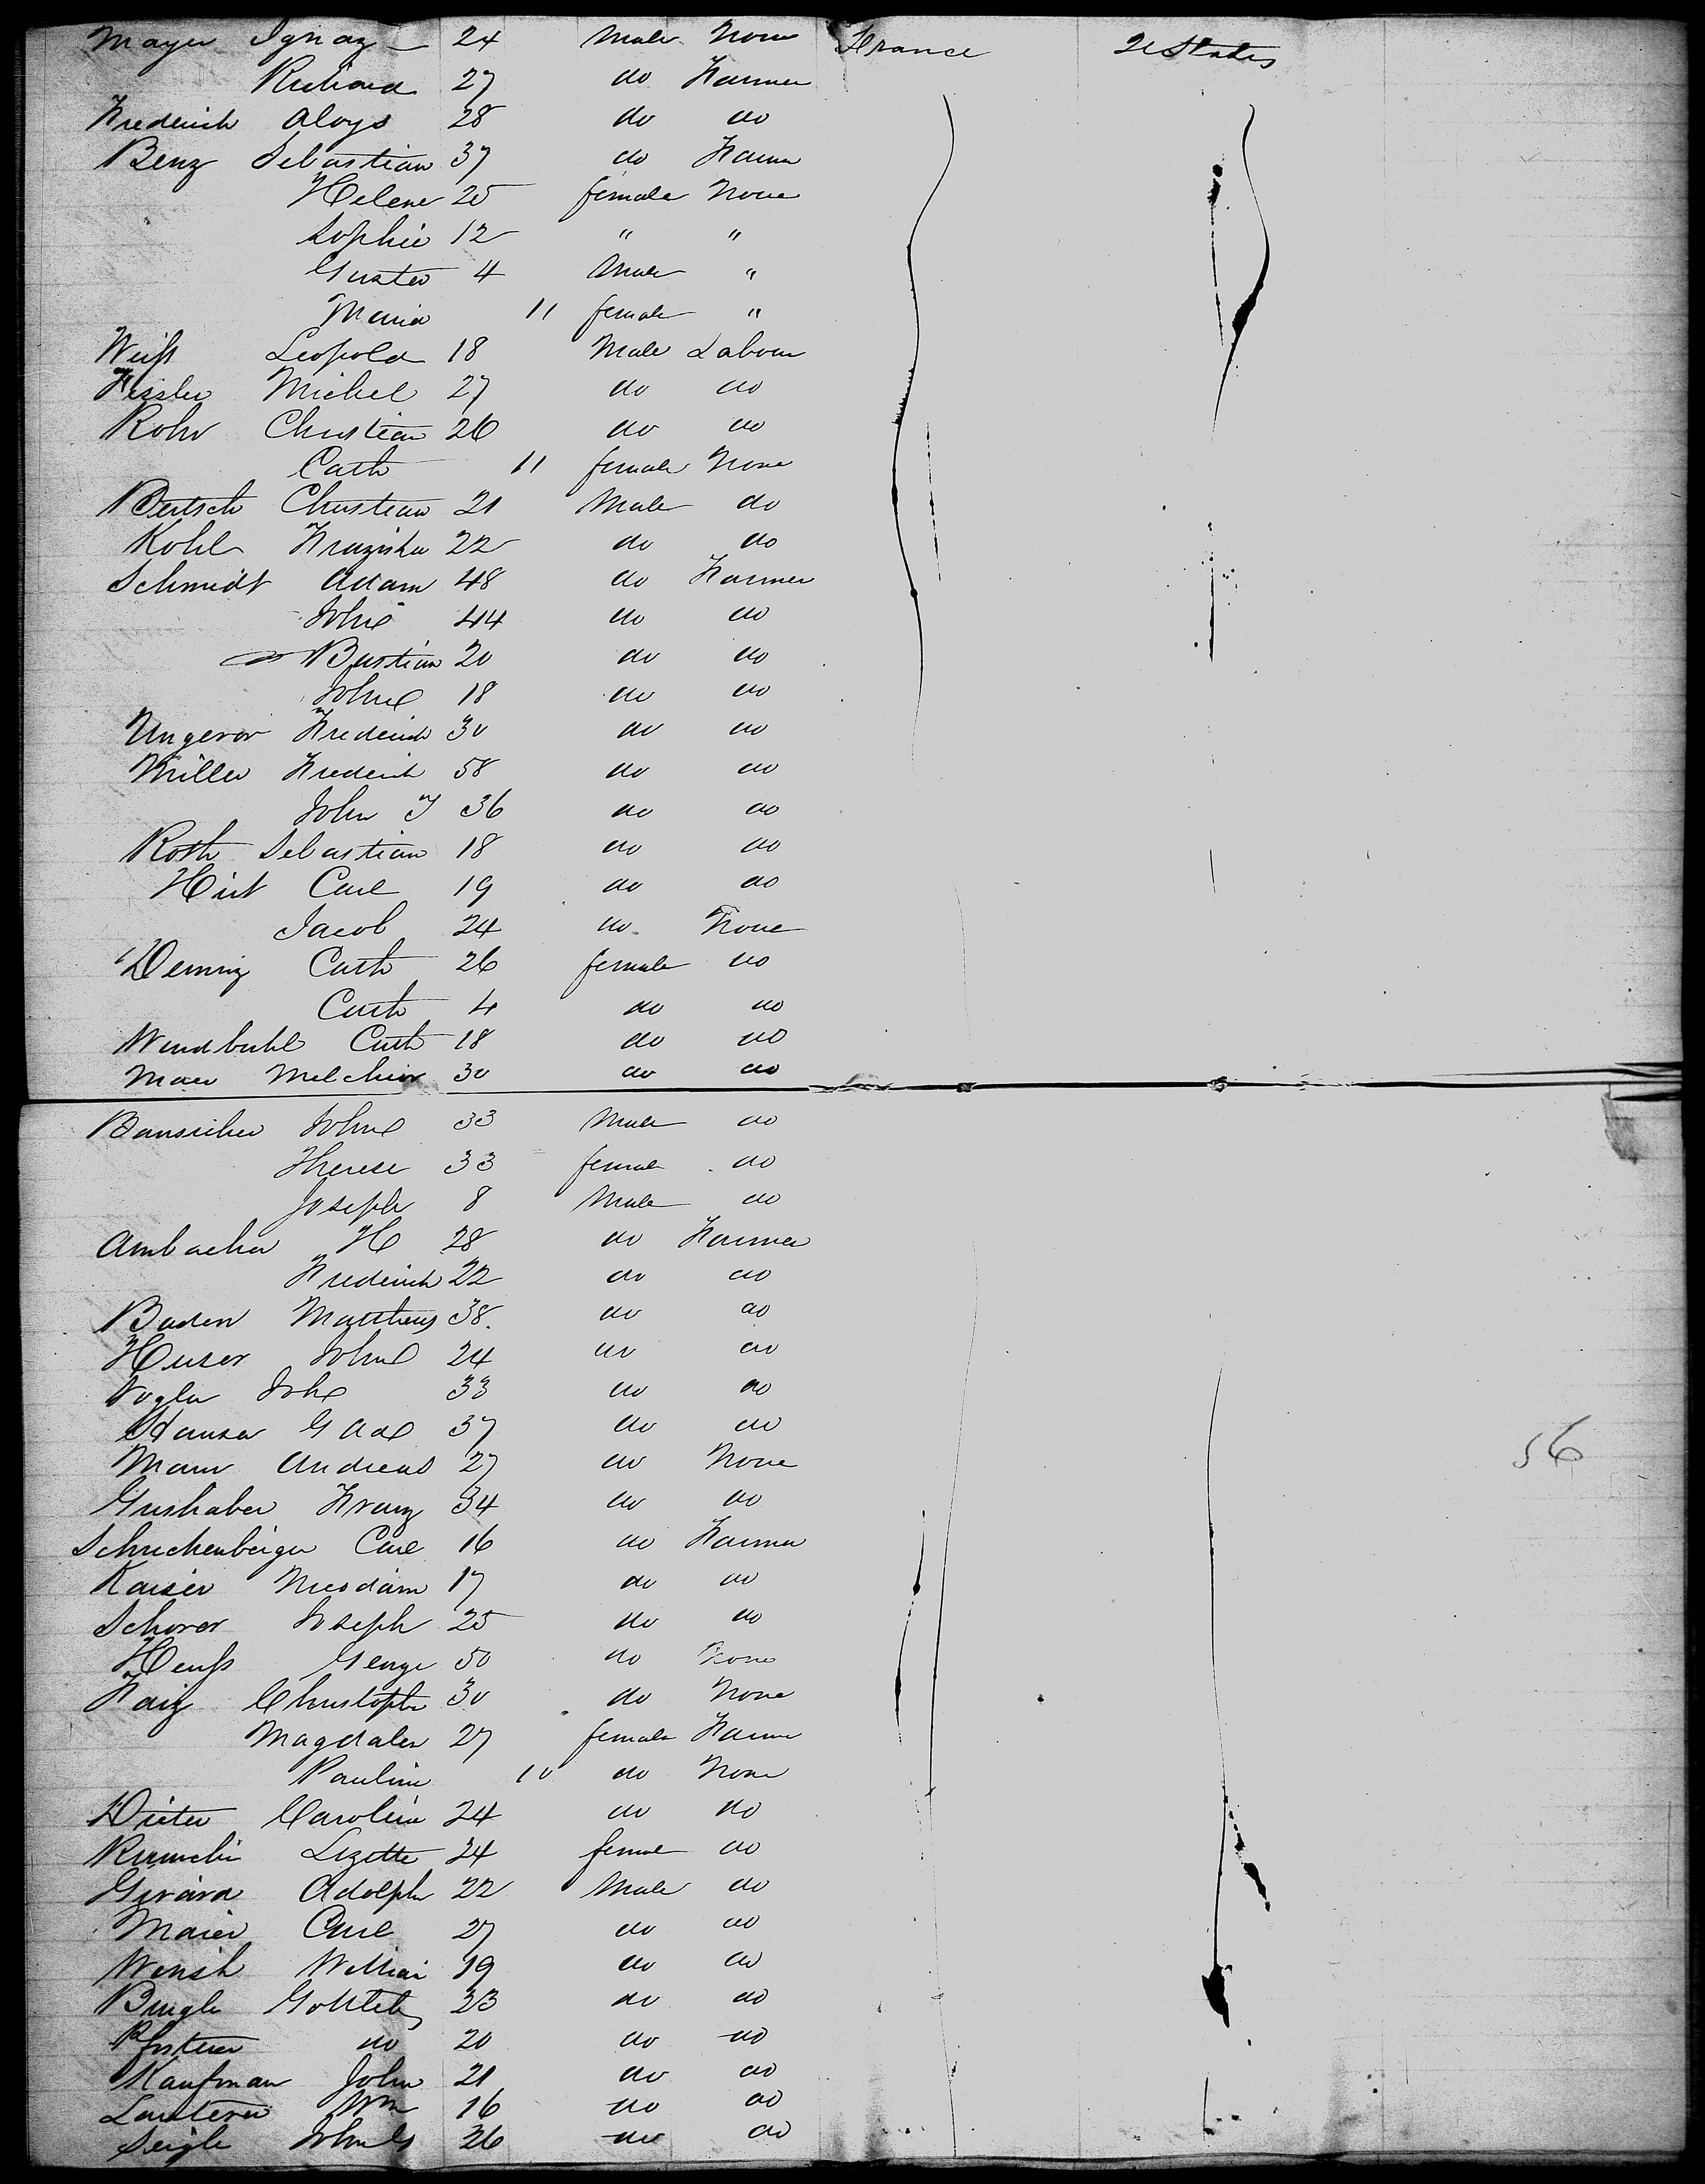 Mayer Ignaz 24 Male None France U States
Richard 27 do Farmer
Frederick Aloys 28 do do
Benz Sebastian 37 do Farm
Helene 25 female None
Sophie 12 " "
Gustav 4 Male "
Maria 11 female "
Weiß Leopold 18 Male Labour
Michel 27 do do
Rohr Christian 26 do do
Cath 11 female None
Bertsch Christian 21 Male do
Kohl Franziska 22 do do
Schmidt Adam 48 do Farmer
John 44 do do
Bastian 20 do do
John 18 do do
Ungerer Frederick 30 do do
Miller Frederick 58 do do
John J 36 do do
Roth Sebastian 18 do do
Hirt Carl 19 do do
Jacob 24 do None
Cath 26 female do
Cath 4 do do
Cath 18 do do
Melchior 30 do do
John 33 Male do
Therese 33 female do
Joseph 8 Male do
Ambacher H 28 do Farmer
Frederick 22 do do
Baden Matthews 38. do do
Huser John 24 do do
Vogler John 33 do do
Hauser 37 do do
Andreas 27 do None
Grishaber Franz 34 do do
Schuchenberger Carl 16 do Farmer
Kaiser 17 do do
Schorer Joseph 25 do do
Heuß George 50 do None
Faiz Christoph 30 do None
Magdalen 27 female Farm
Pauline 10 do None
Dieter Caroline 24 do do
Lizette 24 female do
Girard Adolph 22 Male do
Maier Carl 27 do do
William 19 do do
Gottlieb 23 do do
do 20 do do
Kaufman John 21 do do
Wm 16 do do
Seigle John 26 do do
56